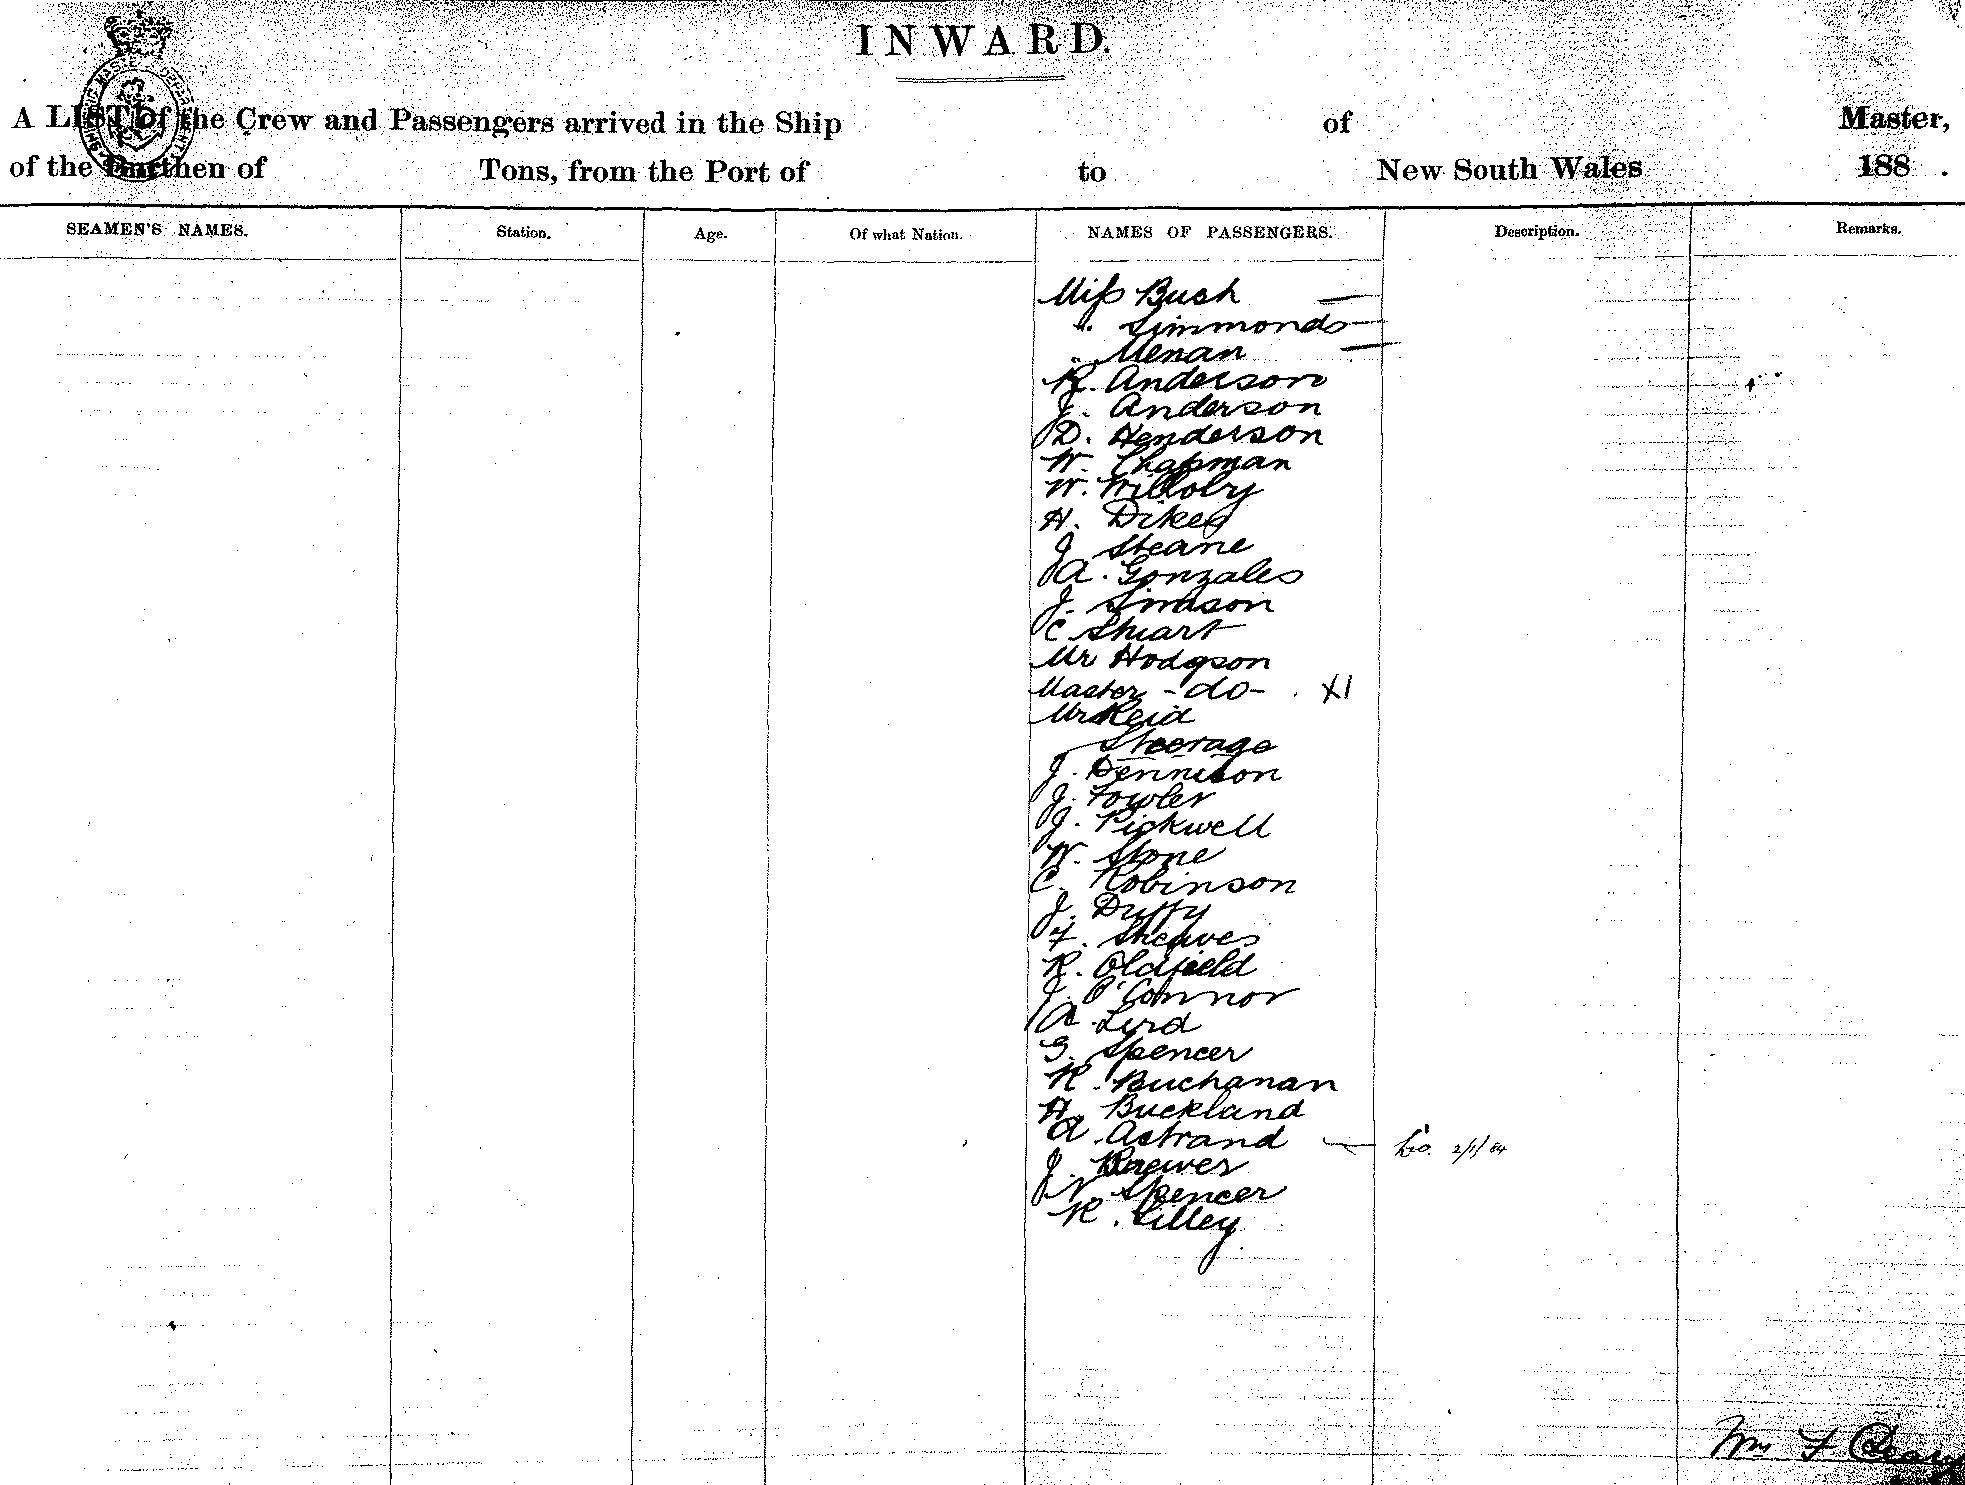 INWARD.
A LIST of the Crew and Passengers arrived in the Ship of Master,
of the Burthen of Tons, from the Port of to New South Wales 188 .
SEAMEN'S NAMES. Station. Age. Of what Nation. NAMES OF PASSENGERS. Description. Remarks.
Miss Bush —
" Simmonds —
" Menan —
R. Anderson
J. Anderson
D. Henderson
W. Chapman
W. Willoby
H. Dikes
J. Steane
A. Gonzales
J. Simson
C Stuart
Mr Hodgson
Master - do - . X1
Mr Reid
Steerage
J. Dennison
J. Fowler
J. Pickwell
W. Stone
C. Robinson
J. Duffy
F. Sheaves
R. Oldfield
J. O'Connor
A. Lird
G. Spencer
R. Buchanan
H. Buckland
A. Astrand — 2/1/84
J. Brewer
N. Spencer
R. Lilley
Wm F